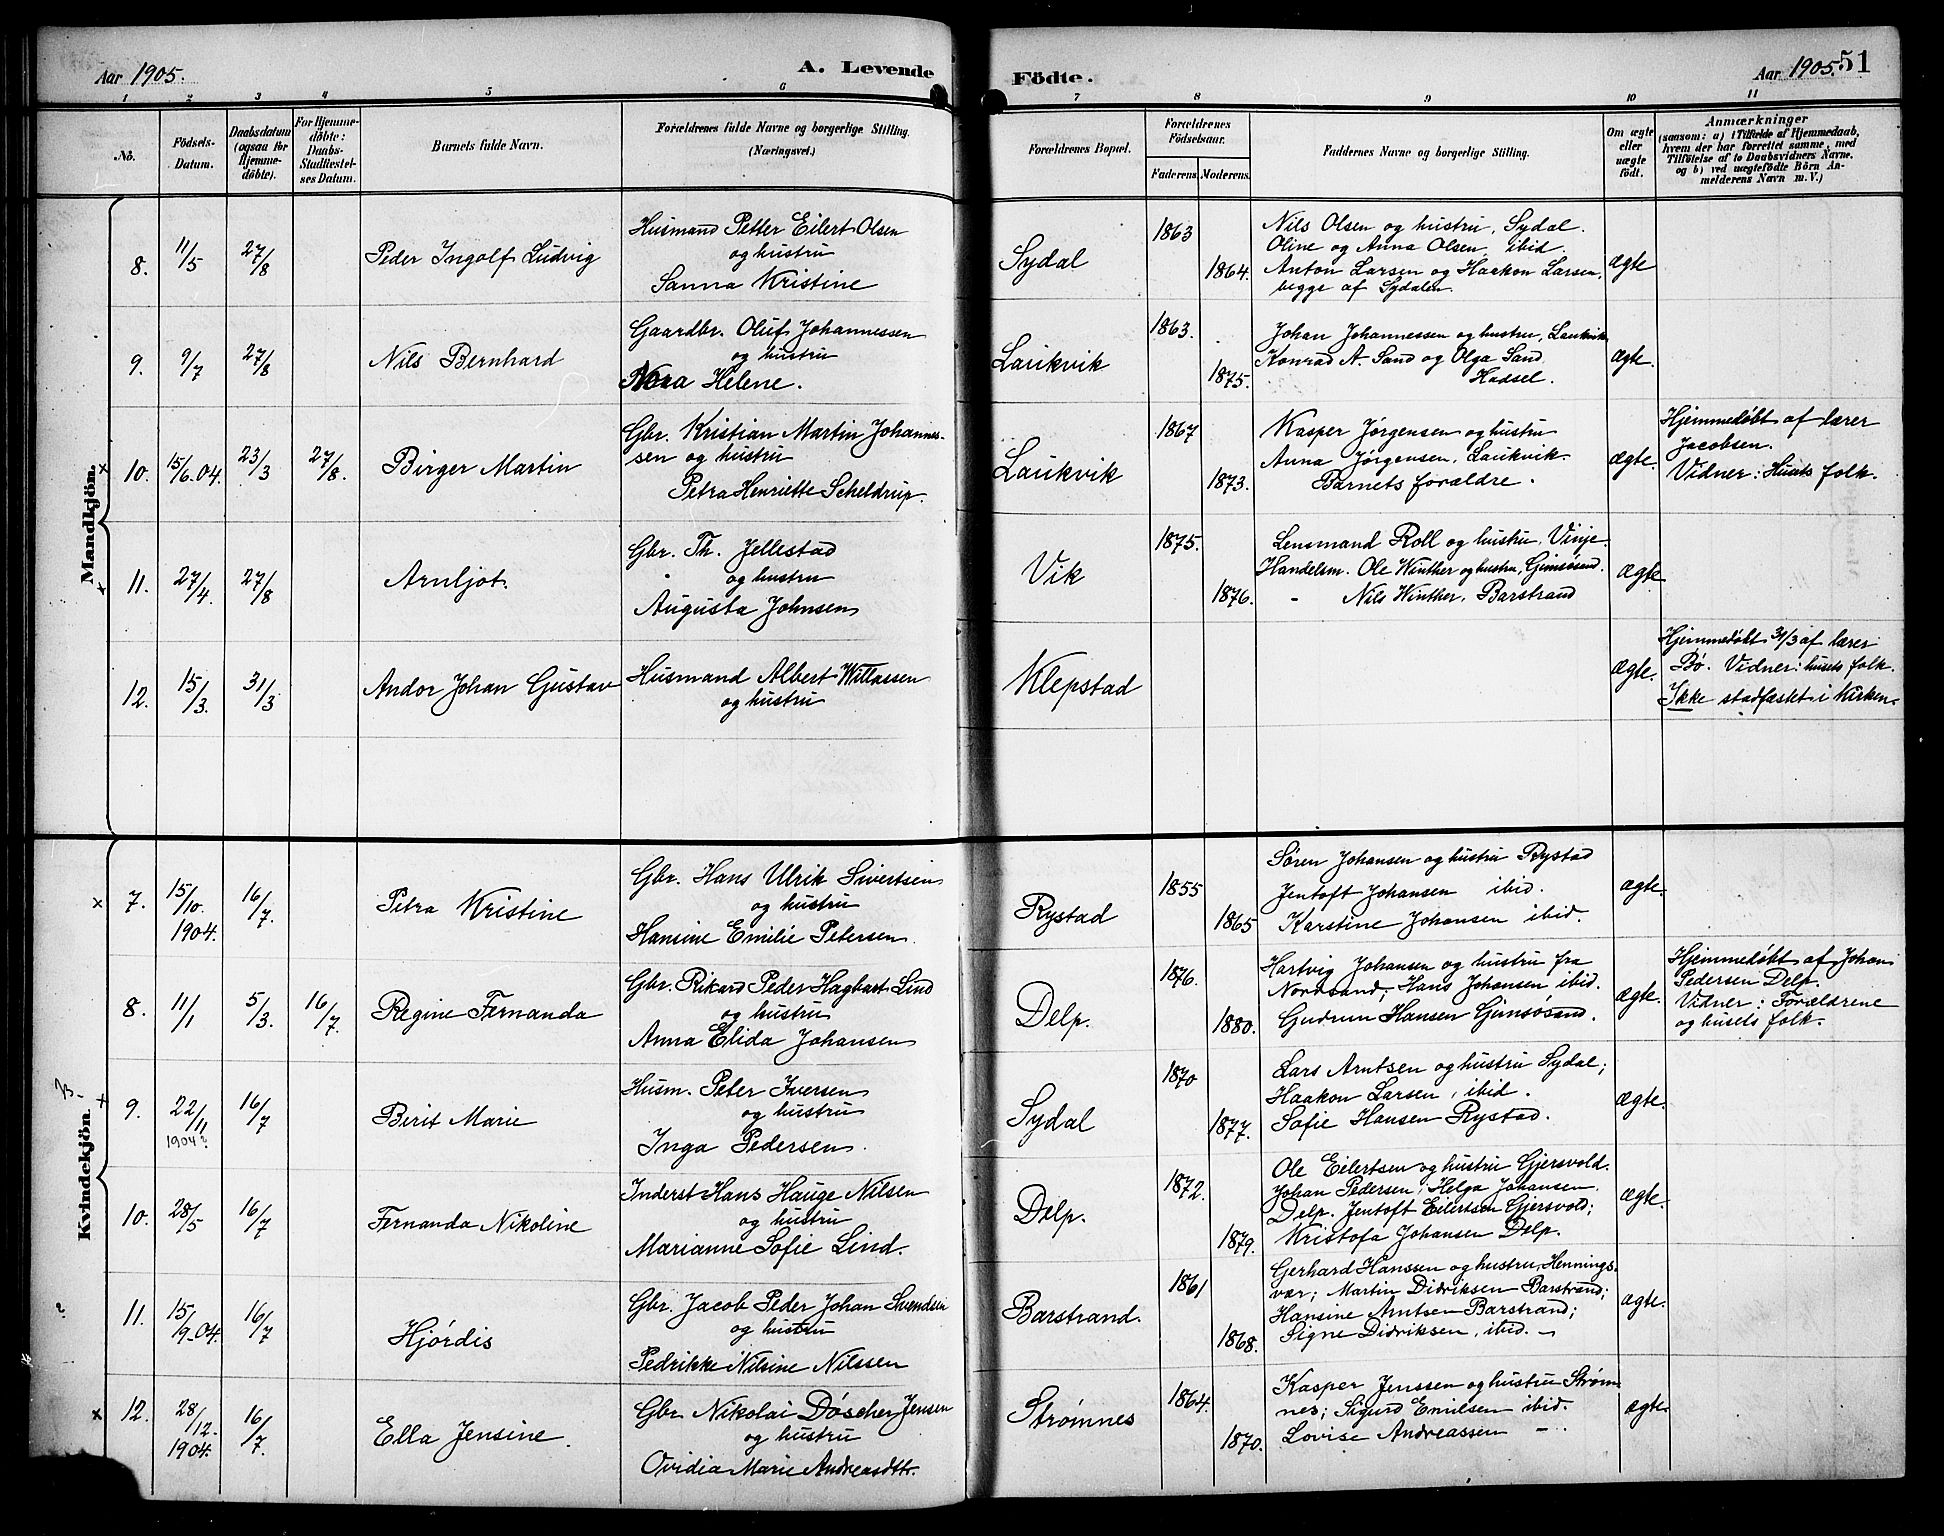 Aar 1905.
A. Levende
Födte.
Aar 1905. 51
1 2 3 4 5 6
7 8 9 10 11
No.
Födsels-
Datum.
Daabsdatum
(ogsaa for
Hjemme-
döbte).
For Hjemme-
döbte:
Daabs-
Stadfæstel-
ses Datum.
Barnets fulde Navn.
Forældrenes fulde Navne og borgerlige Stilling.
(Næringsvei.)
Forældrenes Bopæl.
Forældrenes
Födselsaar.
Faderens. Moderens.
Faddernes Navne og borgerlige Stilling.
Om ægte
eller
uægte
født.
Anmærkninger
(saasom: a) i Tilfælde af Hjemmedaab,
hvem der har forrettet samme, med
Tilföielse af to Daabsvidners Navne,
og b) ved uægtefödte Börn An-
melderens Navn m. V.)
Mandkjön.
8. 11/5 27/8 Peder Ingolf Ludvig
Husmand Petter Eilert Olsen
og hustru
Sanna Kristine
Sydal
1863
1864.
Nils Olsen og hustru, Sydal.
Oline og Anna Olsen, ibid.
Anton Larsen og Haakon Larsen,
begge af Sydalen.
ægte
9. 9/7 27/8 Nils Bernhard
Gaardbr. Oluf Johannessen
og hustru
Nora Helene.
Laukvik
1863.
1875.
Johan Johannessen og hustru, Laukvik
Konrad A. Sand og Olga Sand
Hadsel.
ægte.
x 10. 15/6.04. 23/3 27/8. Birger Martin
Gbr. Kristian Martin Johannes-
sen og hustru
Petra Henriette Scheldrup.
Laukvik
1867
1873.
Kasper Jørgensen og hustru
Anna Jørgensen, Laukvik.
Barnets forældre.
ægte.
Hjemmedøbt af lærer
Jacobsen.
Vidner: Husets folk.
x 11. 27/4. 27/8 Arnljot.
Gbr. Th. Jellestad
og hustru
Augusta Johnsen
Vik
1875.
1876.
Lensmand Roll og hustru, Vinje.
Handelsm. Ole Winther og hustru, Gimsøsand.
- Nils Winther, Barstrand
ægte
12. 15/3. 31/3 Andor Johan Gustav
Husmand Albert Willassen
og hustru
Klepstad
ægte.
Hjemmedøbt 31/3 af lærer
Bø. Vidner: husets folk.
Ikke stadfæstet i Kirken.
Kvindekjön.
x 7. 15/10. 1904. 16/7. Petra Kristine
Gbr. Hans Ulrik Sivertsen
og hustru
Hansine Emilie Petersen.
Rystad
1855
1865
Søren Johansen og hustru Rystad
Jentoft Johansen ibid.
Karstine Johansen ibid.
ægte.
8. 11/1 5/3. 16/7. Regine Fernanda
Gbr. Rikard Peder Hagbart Lind
og hustru
Anna Elida Johansen
Delp.
1876.
1880.
Hartvig Johansen og hustru fra
Nordsand; Hans Johansen ibid.
Gudrun Hansen Gimsøsand.
ægte.
Hjemmedøbt af Johan
Pedersen Delp.
Vidner: Forældrene
og husets folk.
x 9. 22/11 1904? 16/7 Berit Marie
Husm. Peter Iversen
og hustru
Inga Pedersen.
Sydal
1870
1877.
Lars Arntsen og hustru Sydal;
Haakon Larsen, ibid.
Sofie Hansen Rystad.
ægte.
10. 28/5 16/7 Fernanda Nikoline
Inderst Hans Hauge Nilsen
og hustru
Marianne Sofie Lind.
Delp.
1872.
1879.
Ole Eilertsen og hustru Gjersvold.
Johan Pedersen; Helga Johansen
Delp. Jentoft Eilertsen Gjersvold;
Kristofa Johansen Delp.
ægte.
? 11. 15/9-04. 16/7 Hjórdis
Gbr. Jacob Peder Johan Svendsen
og hustru
Pedrikke Nilsine Nilssen
Barstrand.
1861
1868.
Gerhard Hanssen og hustru, Hennings-
vær; Martin Didriksen Barstrand;
Hansine Arntsen Barstrand;
Signe Didriksen, ibid. -
ægte.
x 12. 28/12. 1904. 16/7. Ella Jensine.
Gbr. Nikolai Döscher Jensen
og hustru
Ovidia Marie Andreasdtr.
Strømnes
1864.
1870.
Kasper Jenssen og hustru Strøm-
nes; Sigurd Emilsen ibid.
Lovise Andreassen -.
ægte.